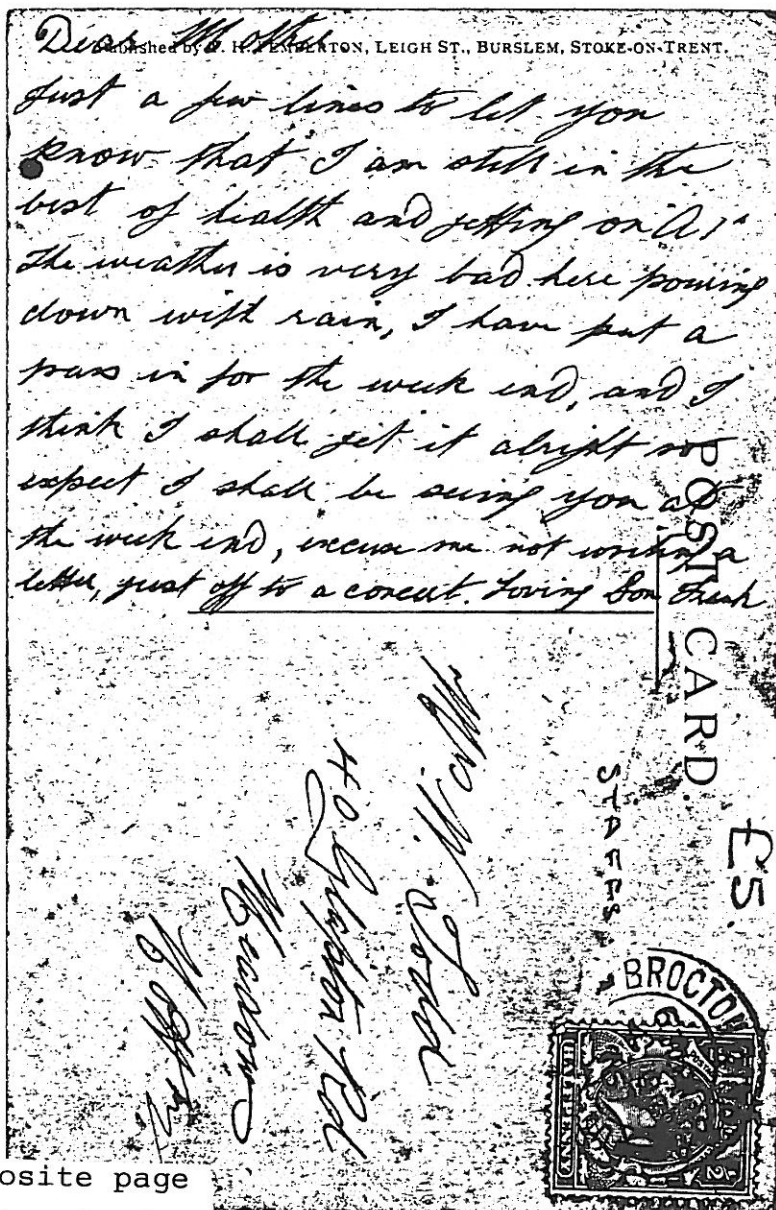 Dear Mother
Published by . H. PEMBERTON, LEIGH ST., BURSLEM, STOKE-ON-TRENT.
Just a few lines to let you
know that I am still in the
best of health and getting on A1
The weather is very bad here pouring
down with rain, I have put a
pass in for the week end, and I
think I shall get it alright so
expect I shall be seeing you at
the week end, excuse me not writing a
letter, just off to a concert. Loving Son Frank
POST CARD.
£5.
STAFFS
BROCTON
HALFPENNY
Mrs W. Todd
40 Glapton Rd
Meadows
Nottm
osite page